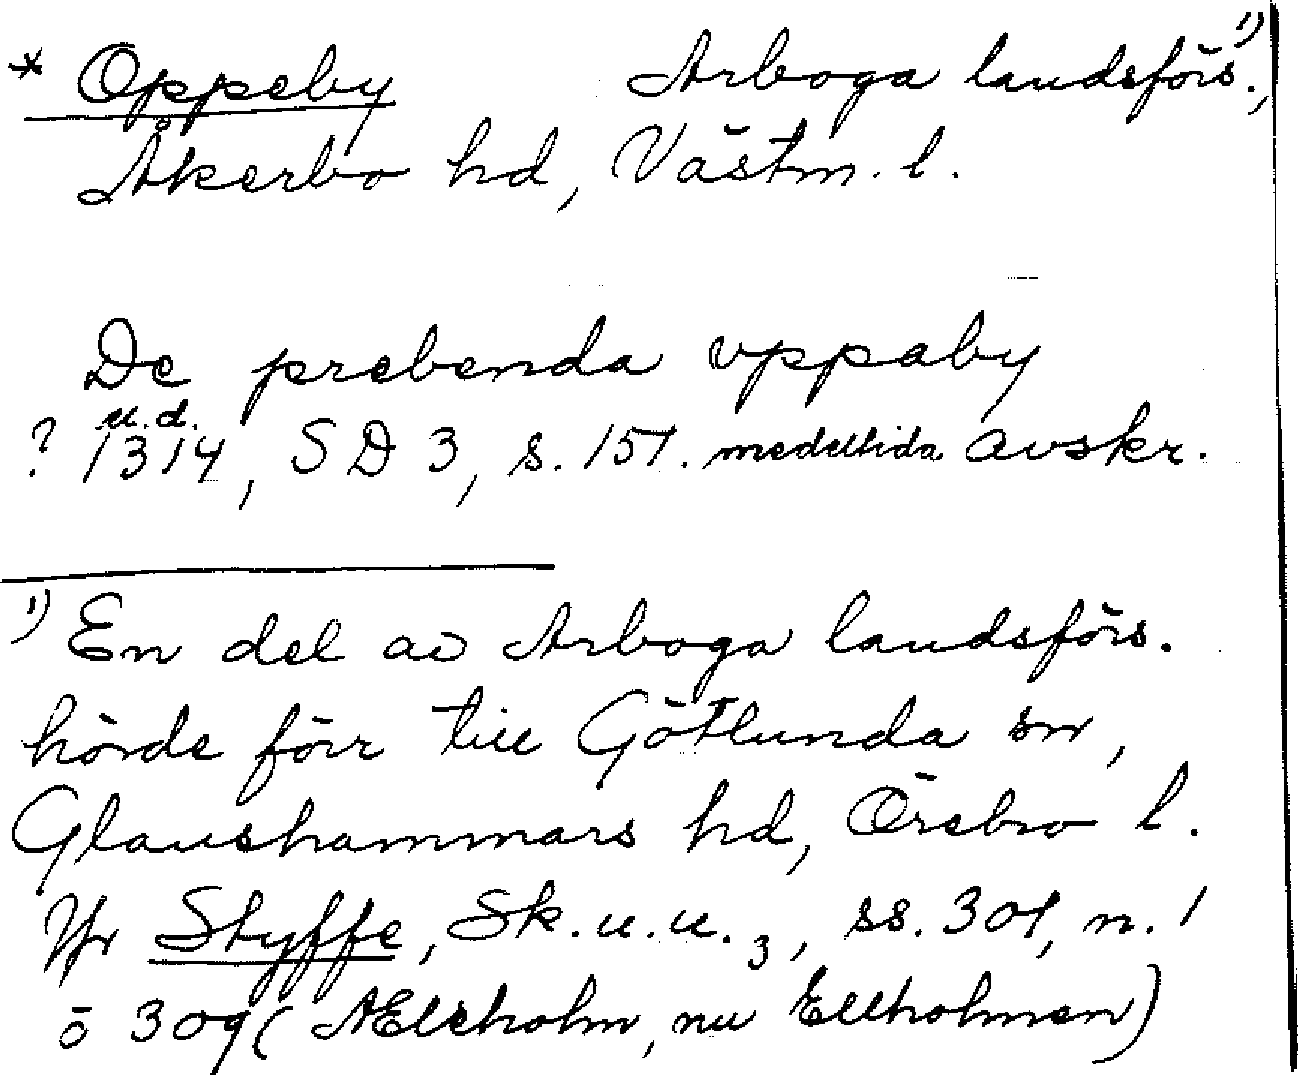 * Oppeby Arboga landsförs.¹⁾,
Åkerbo hd, Västm. l.
De prebenda vppaby
u.d.
? 1314, SD 3, s. 151. medeltida avskr.
¹⁾ En del av Arboga landsförs.
hörde förr till Götlunda sn,
Glanshammars hd, Örebro l.
Jfr Styffe, Sk.u.u.₃, ss. 301, n. 1
o 309 (Ælsholm, nu Ellholmen)